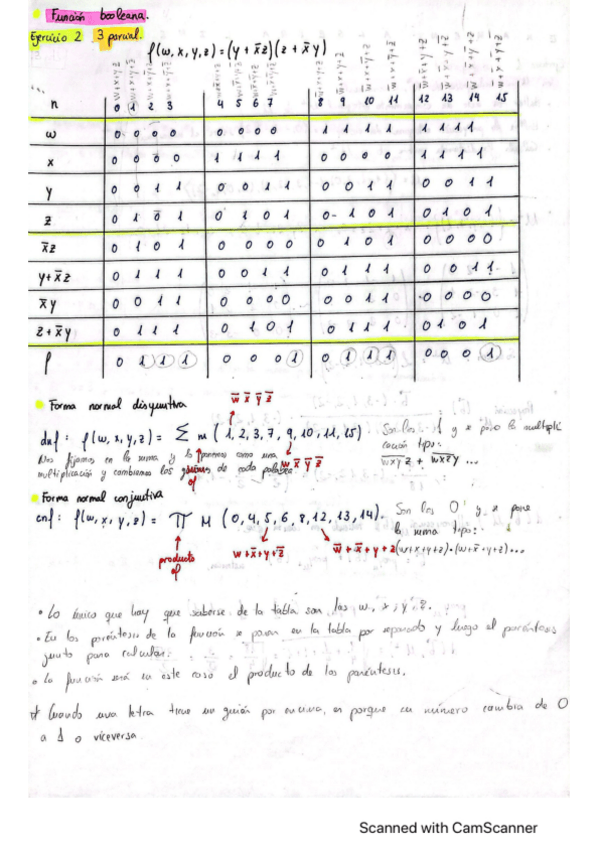 Función booleana.
Ejercicio 2 3 parcial.
f(w, x, y, z) = (y + x̄z)(z + x̄y)
n 0 1 2 3 4 5 6 7 8 9 10 11 12 13 14 15
w 0 0 0 0 0 0 0 0 1 1 1 1 1 1 1 1
x 0 0 0 0 1 1 1 1 0 0 0 0 1 1 1 1
y 0 0 1 1 0 0 1 1 0 0 1 1 0 0 1 1
z 0 1 0 1 0 1 0 1 0 1 0 1 0 1 0 1
x̄z 0 1 0 1 0 0 0 0 0 1 0 1 0 0 0 0
y+x̄z 0 1 1 1 0 0 1 1 0 1 1 1 0 0 1 1
x̄y 0 0 1 1 0 0 0 0 0 0 1 1 0 0 0 0
z+x̄y 0 1 1 1 0 1 0 1 0 1 1 1 0 1 0 1
f 0 1 1 1 0 0 0 1 0 1 1 1 0 0 0 1
Forma normal disyuntiva
w̄ x̄ ȳ z
dnf: f(w, x, y, z) = Σ m (1, 2, 3, 7, 9, 10, 11, 15)
Son los 1 y se pone la multipli
cación tipo:
Nos fijamos en la suma y lo ponemos como una
multiplicación y cambiamos los signos de cada palabra
Forma normal conjuntiva
cnf: f(w, x, y, z) = ∏ M (0, 4, 5, 6, 8, 12, 13, 14).
Son los 0 y se pone
la suma tipo:
producto
w+x̄+y+z̄
w̄+x̄+y+z
(w+x+y+z)·(w+x̄+y+z)...
• Lo único que hay que saberse de la tabla son las w, x, y, z.
• En los paréntesis de la función se ponen en la tabla por separado y luego el paréntesis
junto para calcular.
• La función será en este caso el producto de los paréntesis.
* Cuando una letra tiene un guión por encima, es porque su número cambia de 0
a 1 o viceversa.
Scanned with CamScanner